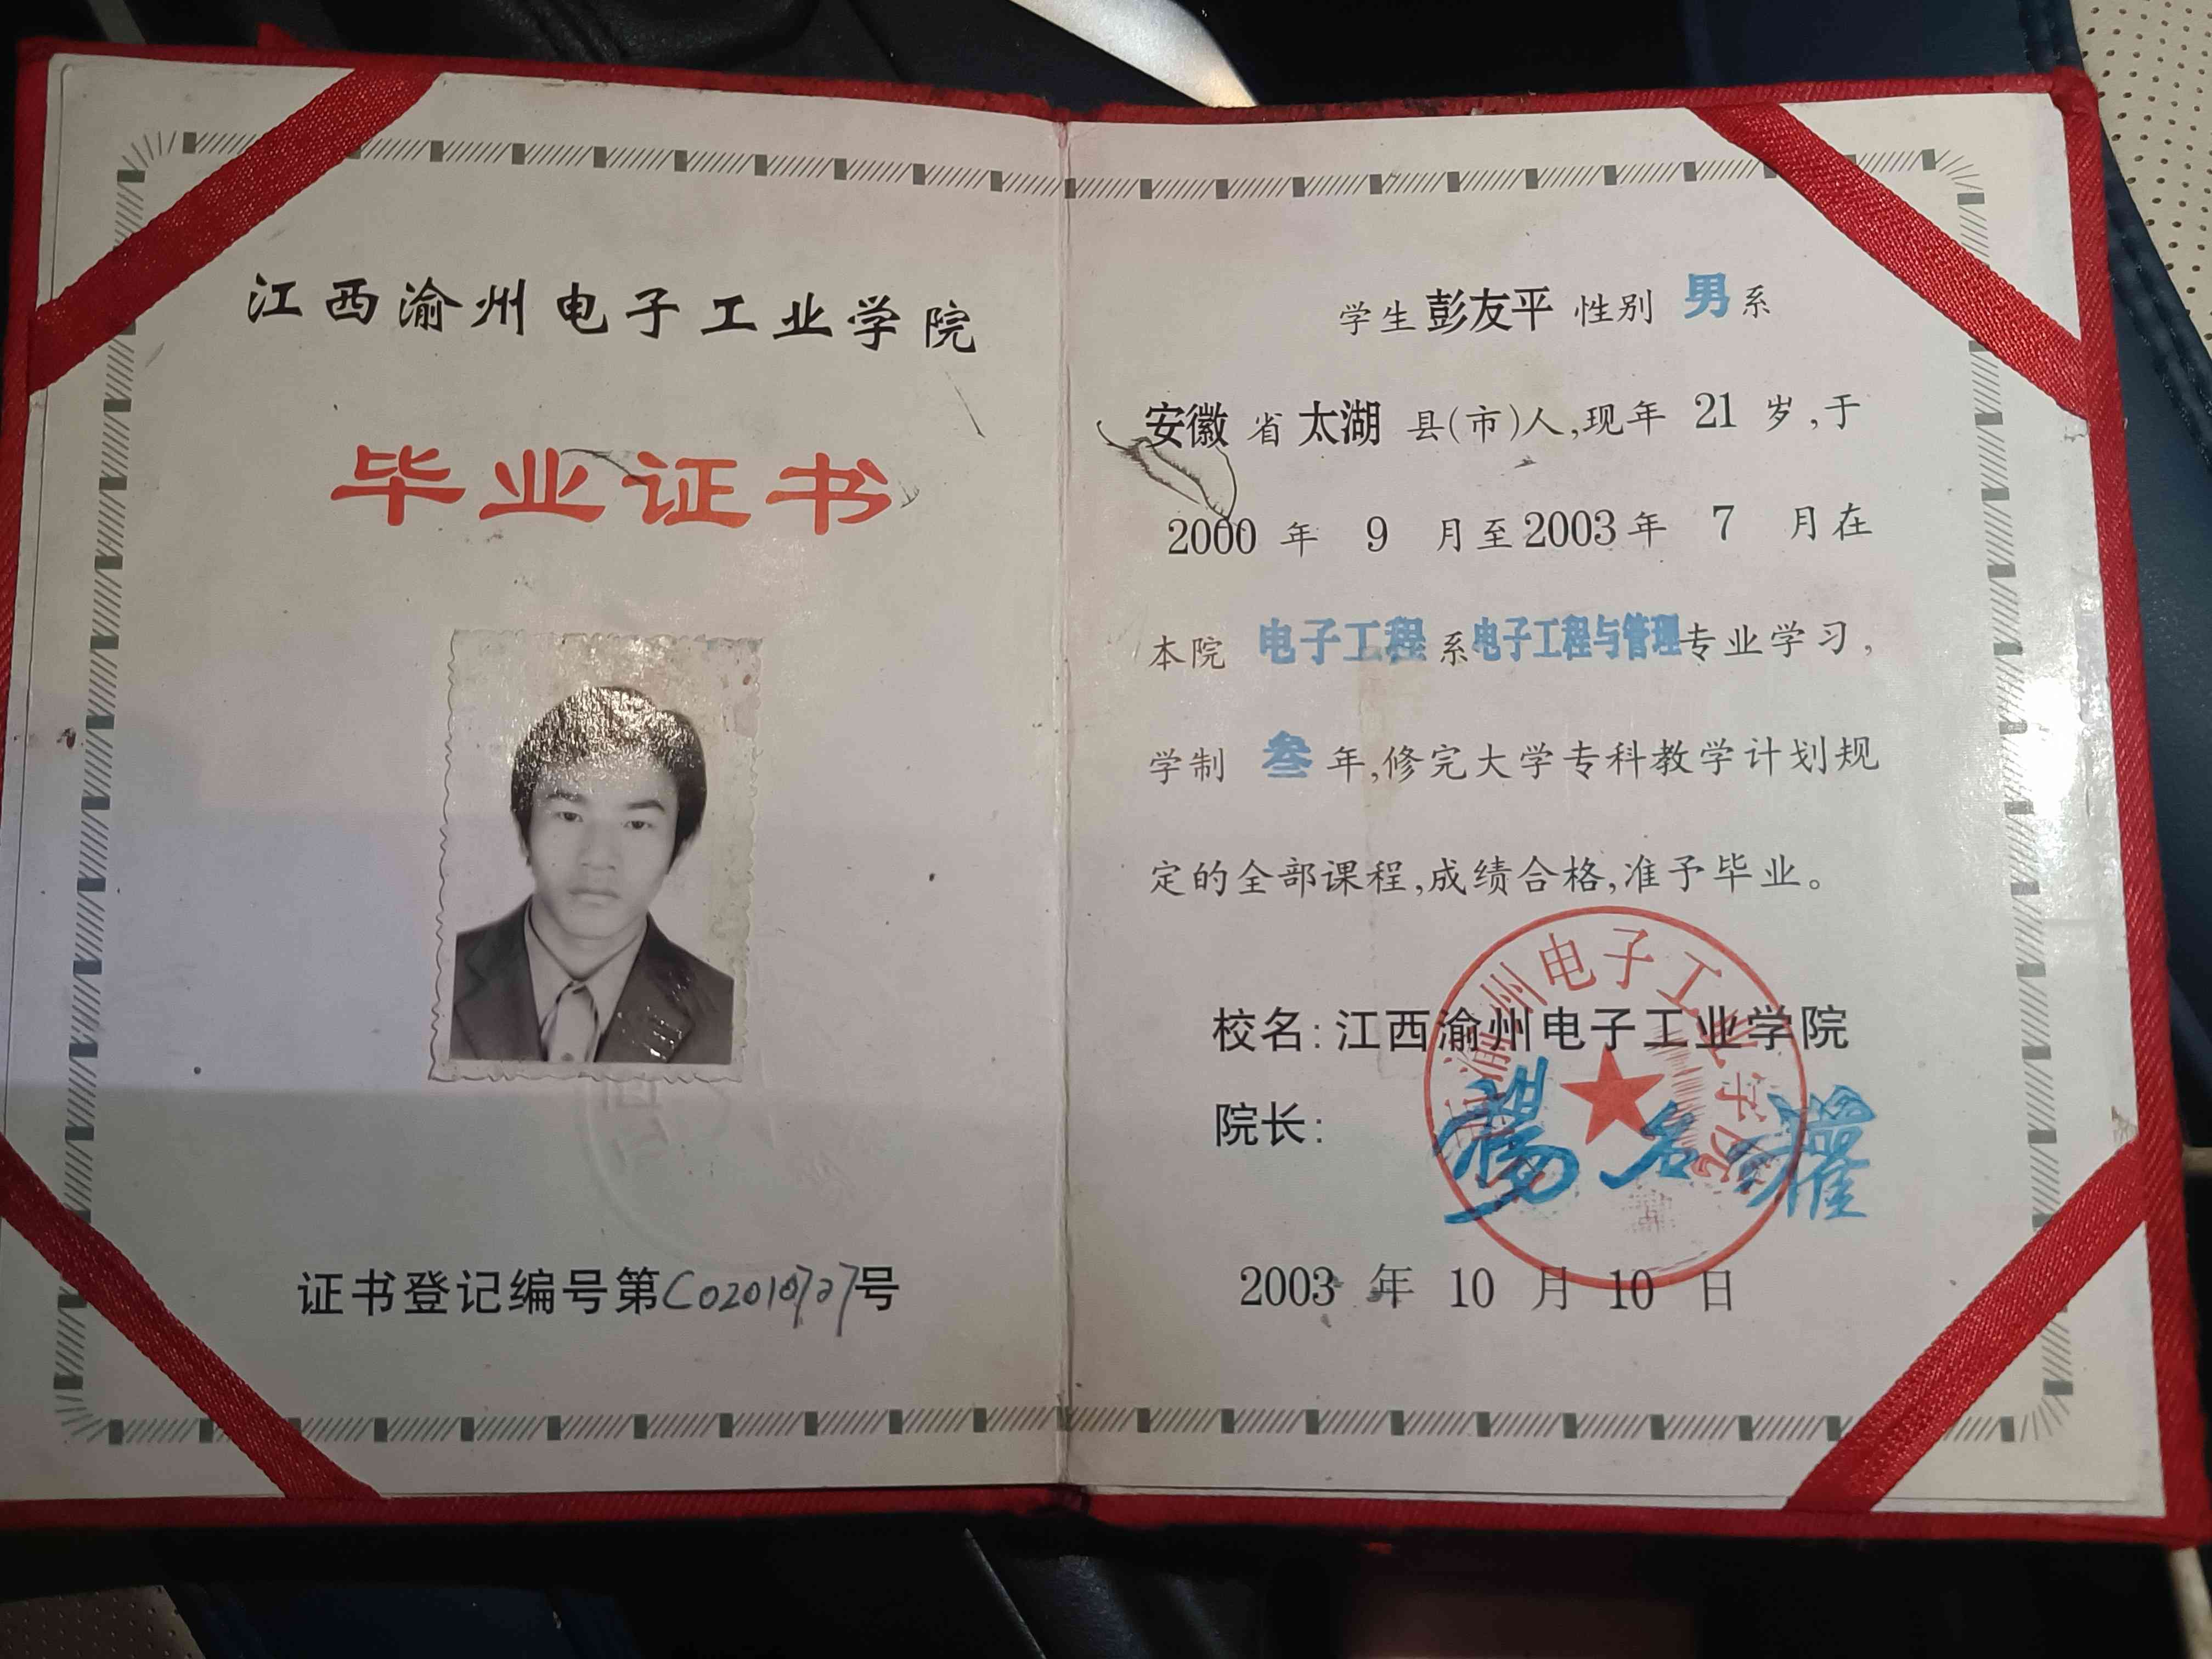 江西渝州电子工业学院
毕业证书
证书登记编号第C02010727号
学生彭友平 性别 男系
安徽 省 太湖 县(市)人,现年 21 岁,于
2000 年 9 月至2003年 7 月在
本院 电子工程 系电子工程与管理专业学习,
学制 叁 年,修完大学专科教学计划规
定的全部课程,成绩合格,准予毕业。
校名:江西渝州电子工业学院
院长:
2003 年 10 月 10 日